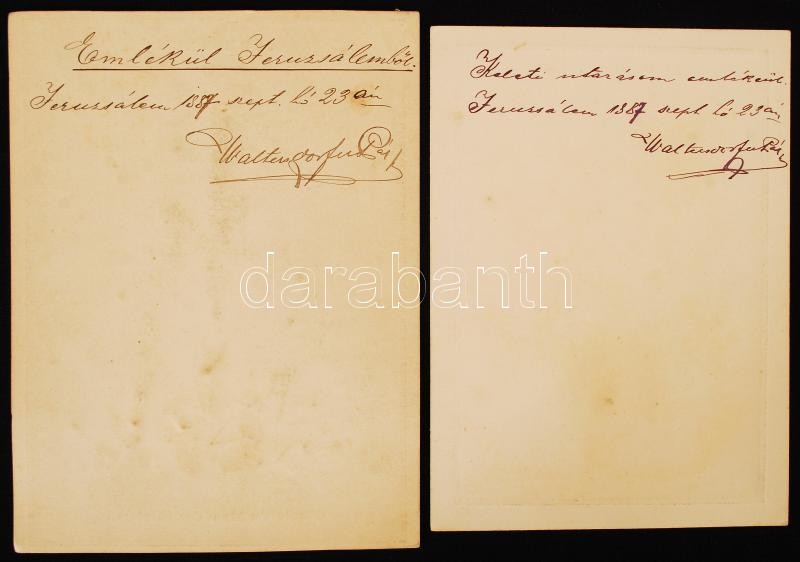 Emlékül Jeruzsálemből.
Jeruzsálem 1887 szept. hó 23 án
Waltersdorfer Pál
Keleti utazásom emlékéül.
Jeruzsálem 1887 szept hó 23 án
Waltersdorfer Pál
darabanth